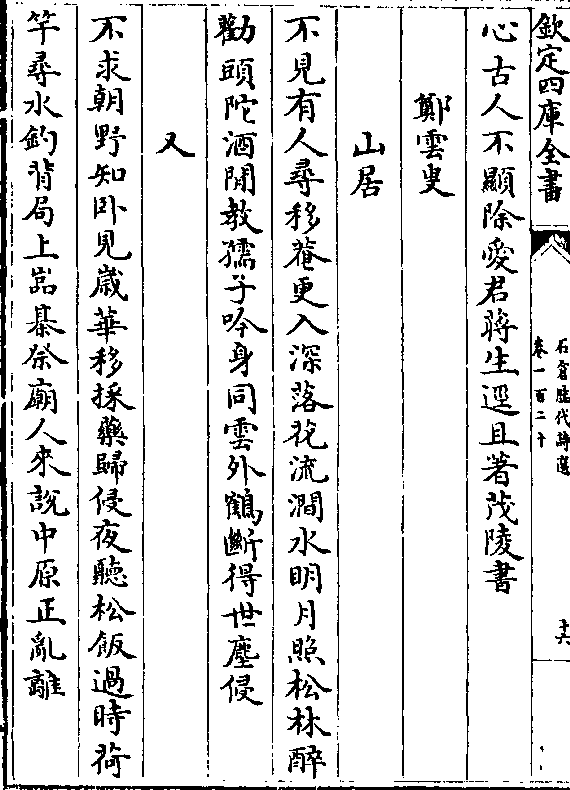 欽定四庫全書
石倉歷代詩選
卷一百二十
十六
心古人不顯除愛君蔣生逕且著茂陵書
鄭雲叟
山居
不見有人尋移菴更入深落花流澗水明月照松林醉
勸頭陀酒閒教孺子吟身同雲外鶴斷得世塵侵
又
不求朝野知卧見歲華移採藥歸侵夜聽松飯過時荷
竿尋水釣背局上嵓棊祭廟人來說中原正亂離